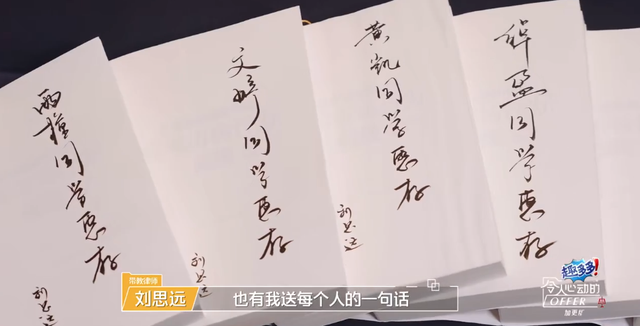 雨橦同学惠存
刘思远
文婷同学惠存
刘思远
黄凯同学惠存
刘思远
梓盈同学惠存
带教律师
刘思远
也有我送每个人的一句话
趣多多!
令人心动的
OFFER
加更版